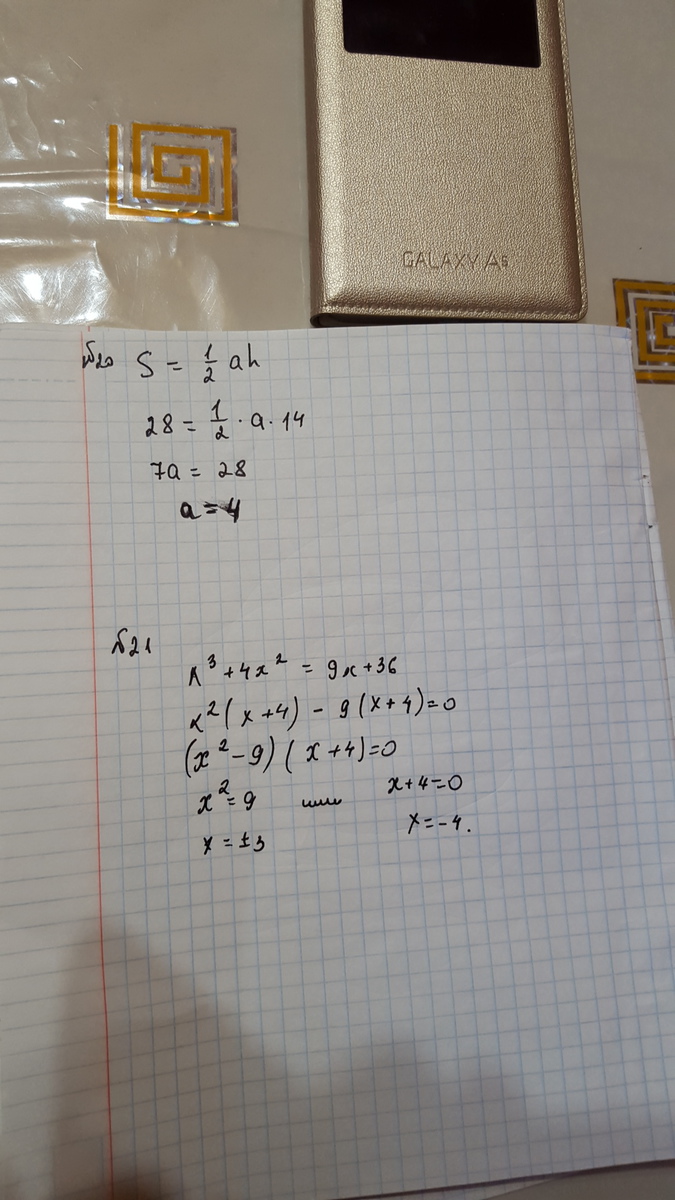 GALAXY A5
№20 S = 1/2 ah
28 = 1/2 · a · 14
7a = 28
a = 4
№21
x³ + 4x² = 9x + 36
x² (x+4) - 9 (x+4) = 0
(x² - 9) (x+4) = 0
x² = 9 или x+4=0
x = ±3 x = -4.